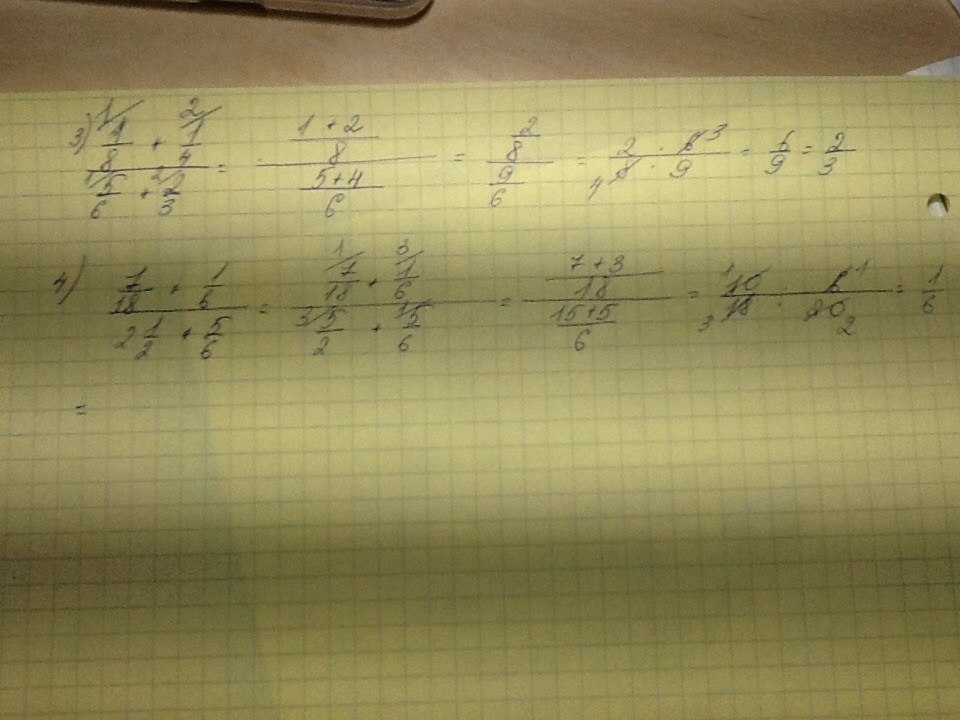 3) (1/8 + 1/4)/(5/6 + 2/3) = ((1+2)/8)/((5+4)/6) = (2/8)/(9/6) = 2/8 · 6/9 = 6/9 = 2/3
4) (7/18 + 1/6)/(2 1/2 + 5/6) = (7/18 + 1/6)/(5/2 + 5/6) = ((7+3)/18)/((15+5)/6) = 10/18 · 6/20 = 1/6
=